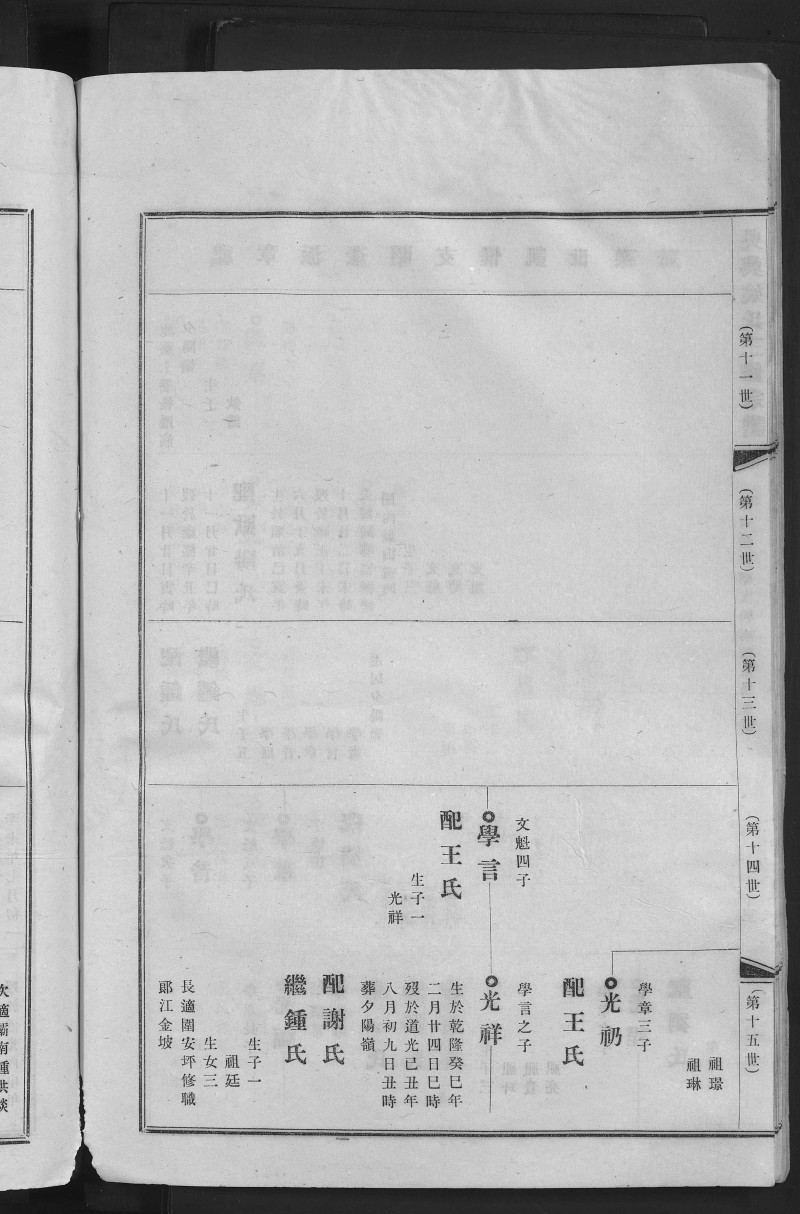 (第十一世)
(第十二世)
(第十三世)
(第十四世)
(第十五世)
文魁四子
學言
配王氏
生子一
光祥
祖璟
祖琳
學章三子
光礽
配王氏
學言之子
光祥
生於乾隆癸巳年
二月廿四日巳時
歿於道光己丑年
八月初九日丑時
葬夕陽嶺
配謝氏
繼鍾氏
生子一
祖廷
生女三
長適圍安坪修職
郞江金坡
次適霸南鍾洪談